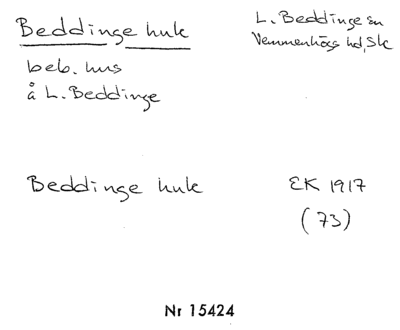 Beddinge huk
L. Beddinge sn
Vemmenhögs hd, Sk
beb. hus
å L. Beddinge
Beddinge huk
EK 1917
(73)
Nr 15424